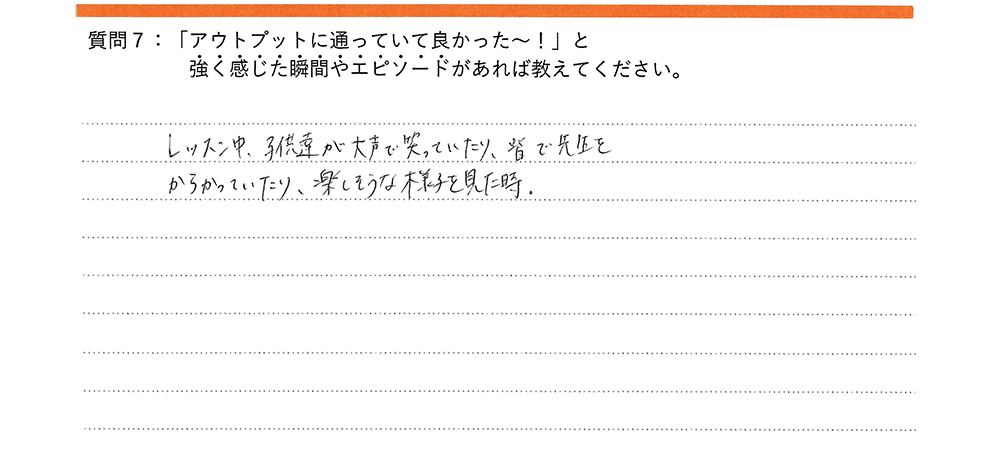 質問７：「アウトプットに通っていて良かった〜！」と
強く感じた瞬間やエピソードがあれば教えてください。
レッスン中、子供達が大声で笑っていたり、皆で先生を
からかっていたり、楽しそうな様子を見た時.